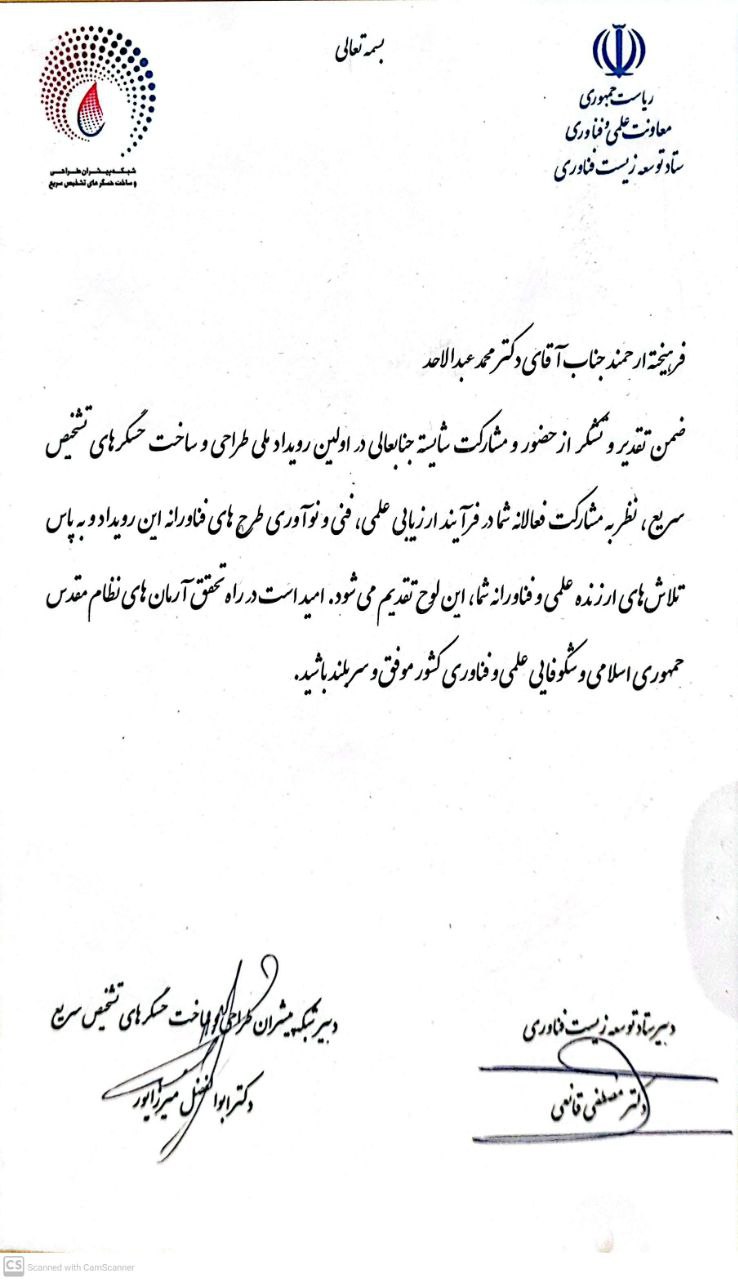 بسمه تعالی
ریاست جمهوری
معاونت علمی و فناوری
ستاد توسعه زیست فناوری
شبکه پیشران طراحی
و ساخت حسگرهای تشخیص سریع
فرهیخته ارجمند جناب آقای دکتر محمد عبدالاحد
ضمن تقدیر و تشکر از حضور و مشارکت شایسته جنابعالی در اولین رویداد ملی طراحی و ساخت حسگرهای تشخیص
سریع، نظر به مشارکت فعالانه شما در فرآیند ارزیابی علمی، فنی و نوآوری طرح های فناورانه این رویداد و به پاس
تلاش های ارزنده علمی و فناورانه شما، این لوح تقدیم می شود. امید است در راه تحقق آرمان های نظام مقدس
جمهوری اسلامی و شکوفایی علمی و فناوری کشور موفق و سربلند باشید.
دبیر ستاد توسعه زیست فناوری
دکتر مصطفی قانعی
دبیر شبکه پیشران طراحی و ساخت حسگرهای تشخیص سریع
دکتر ابوالفضل میرزاپور
CS Scanned with CamScanner